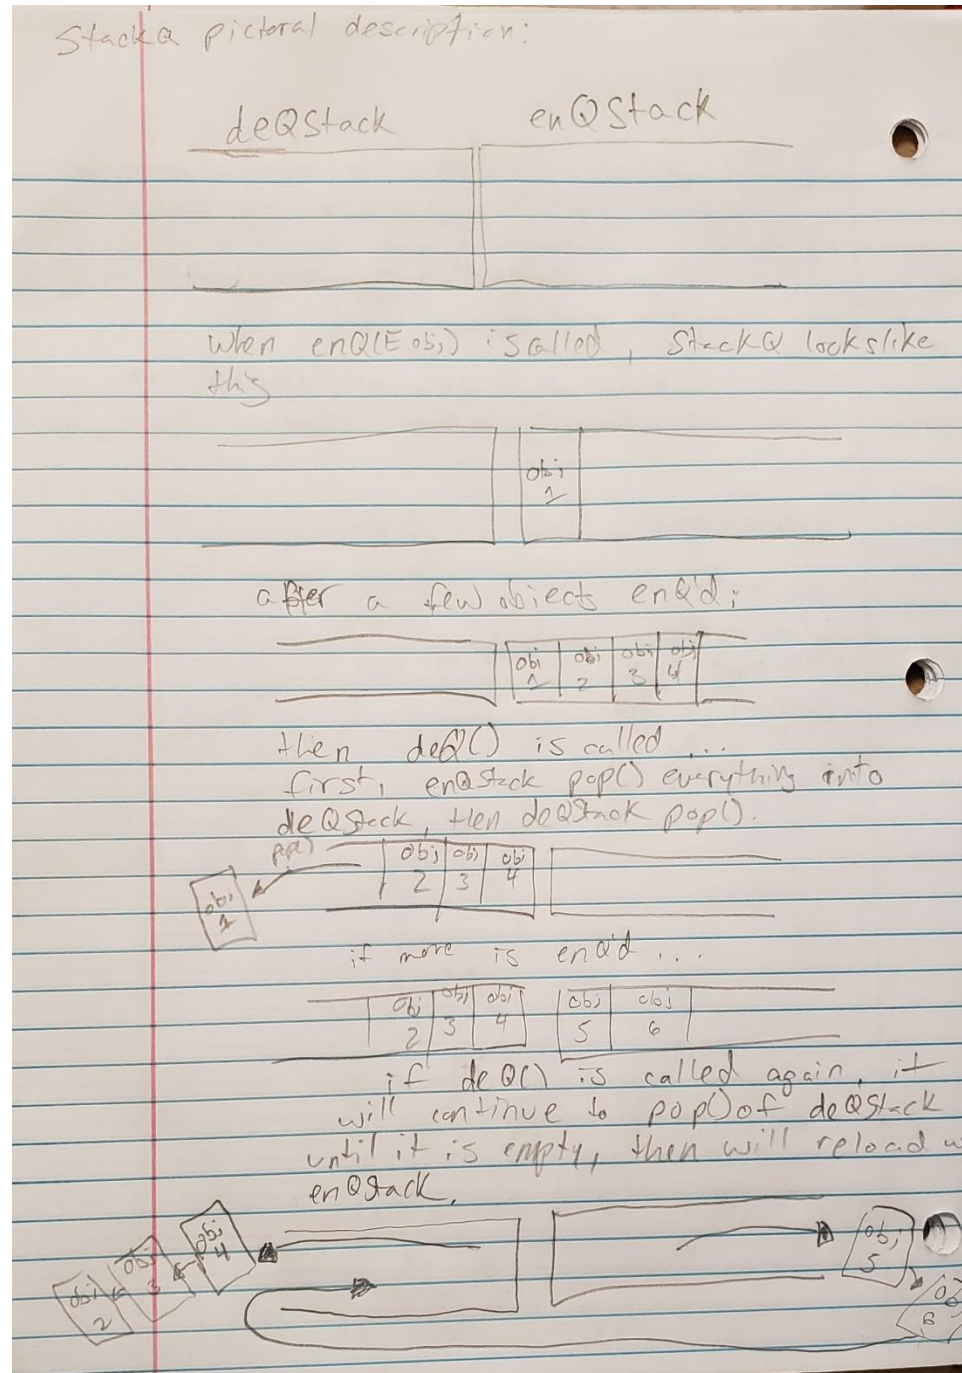 StackQ pictoral description:
deQStack enQStack
when enQ(E obj) is called, StackQ looks like
this
obj
1
after a few objects enQ'd;
obj obj obj obj
1 2 3 4
then deQ() is called ...
first, enQStack pop() everything into
deQStack, then deQStack pop().
pop()
obj obj obj
2 3 4
obj
1
if more is enQ'd ...
obj obj obj obj obj
2 3 4 5 6
if deQ() is called again, it
will continue to pop() of deQStack
until it is empty, then will reload w
enQStack.
obj
4
obj
3
obj
2
obj
5
ob
6